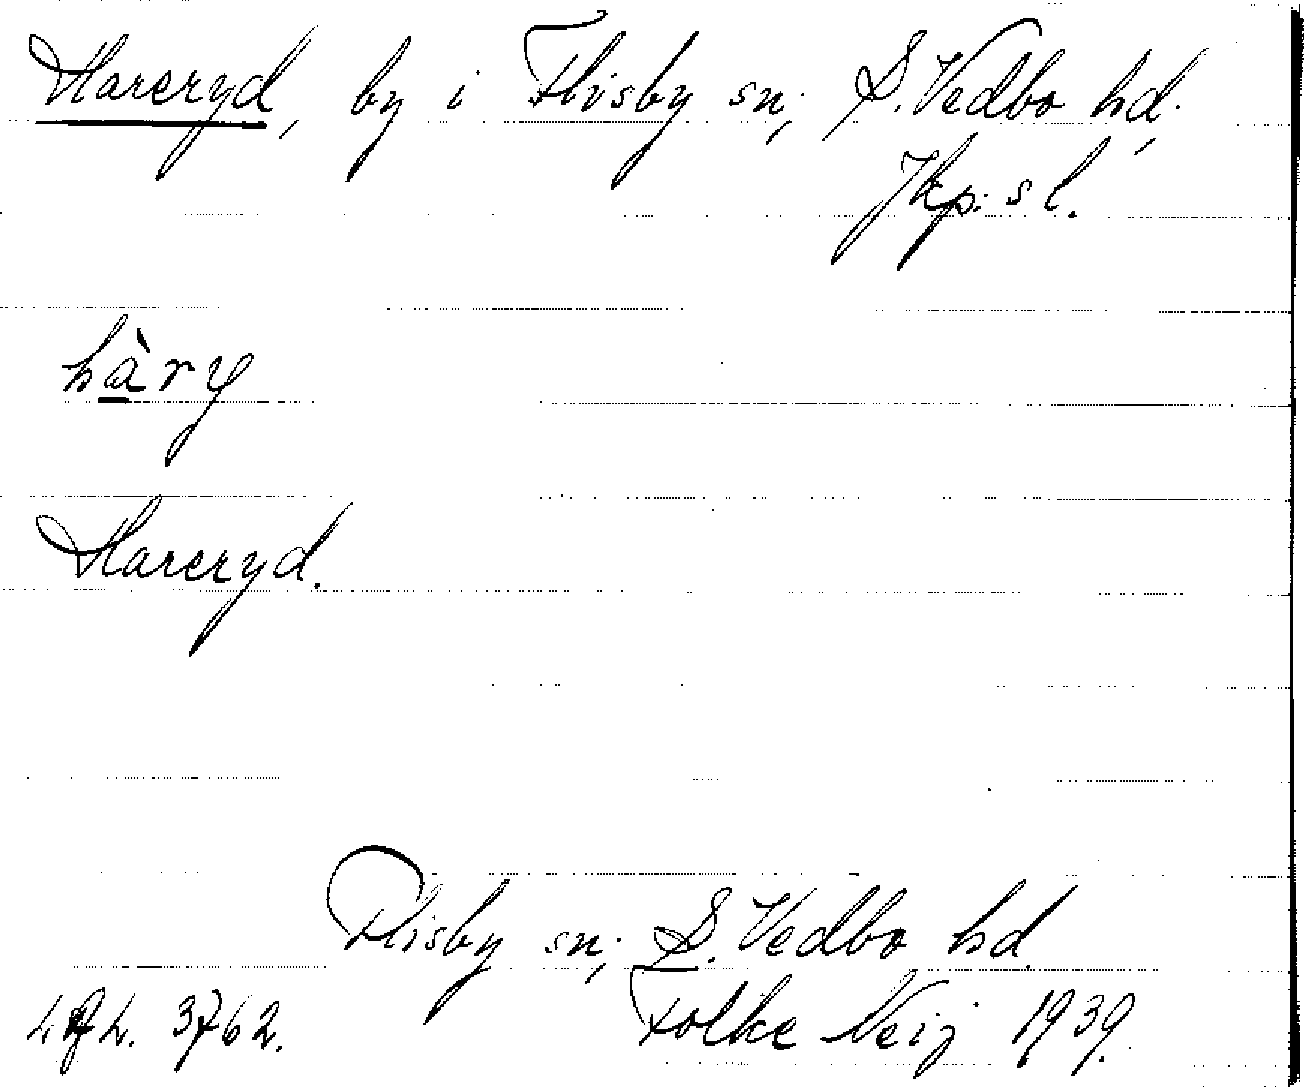 Hareryd, by i Flisby sn, S. Vedbo hd,
Jkp. s l.
hàry
Hareryd.
Flisby sn, S. Vedbo hd
3762. Folke Neij 1939.